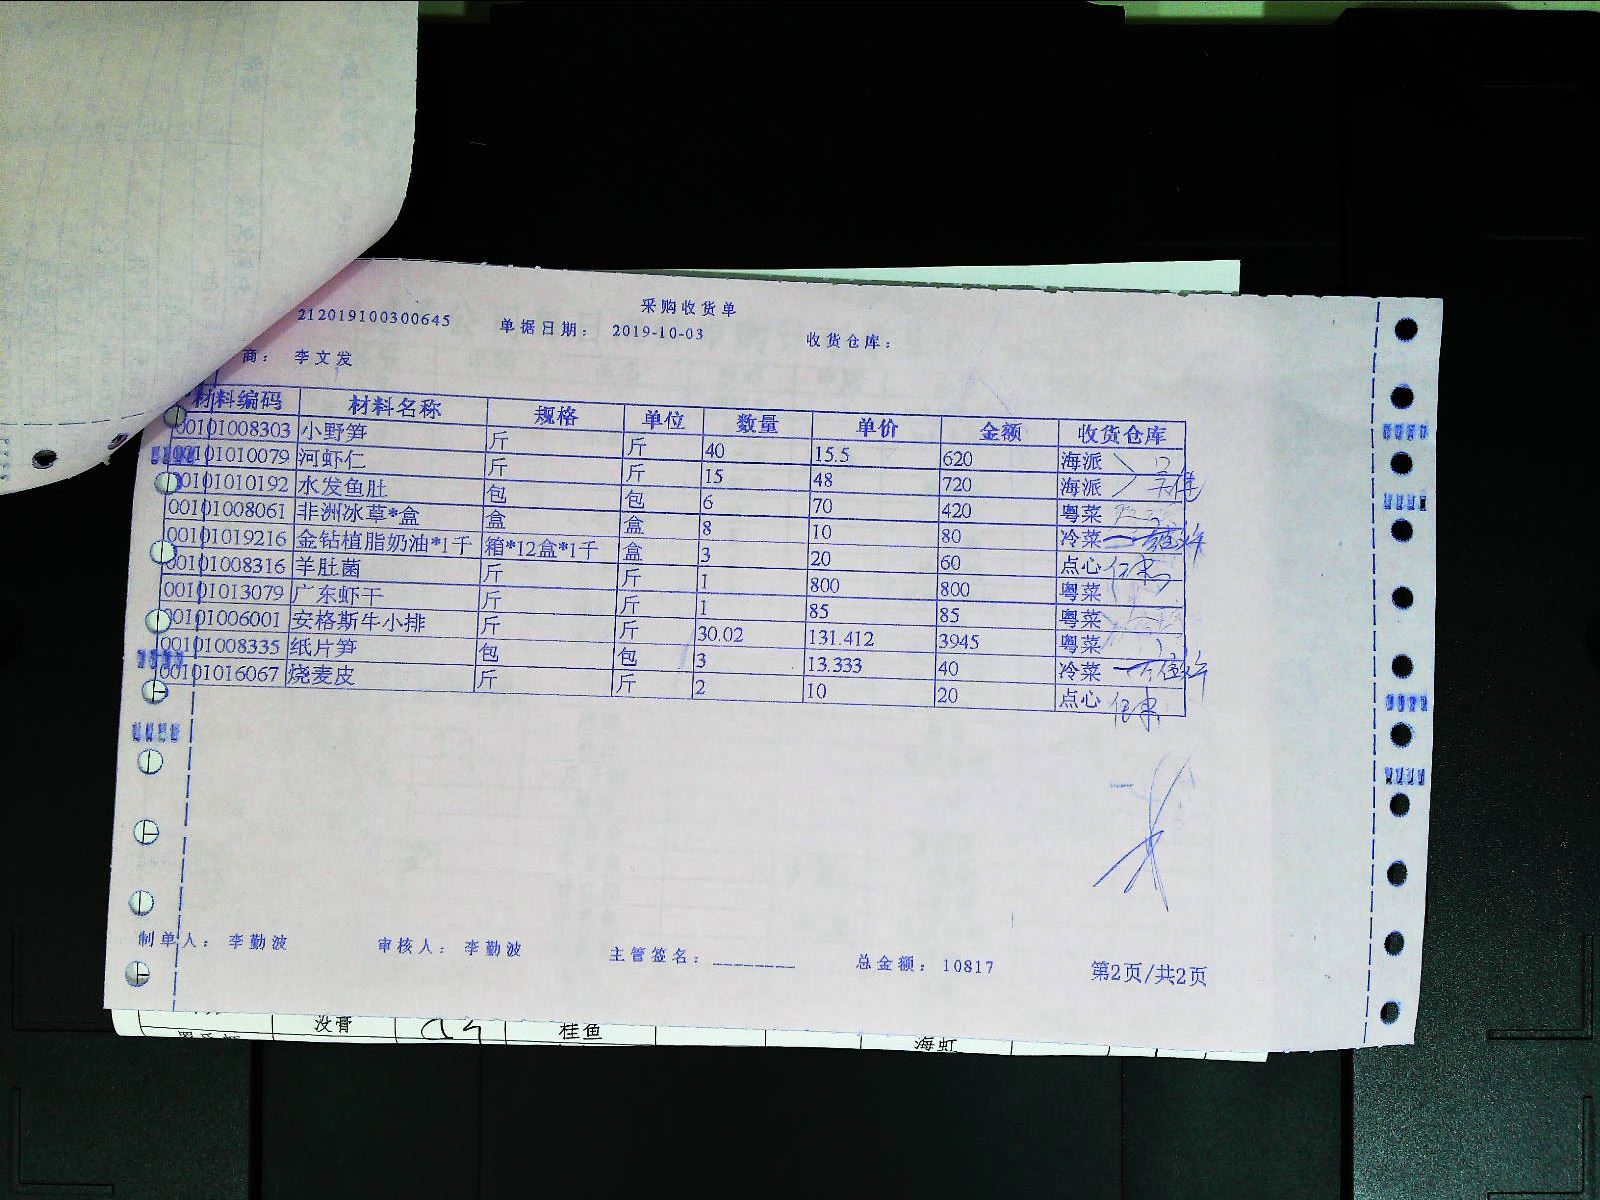 采购收货单
212019100300645 单据日期： 2019-10-03 收货仓库：
商： 李文发
材料编码 材料名称 规格 单位 数量 单价 金额 收货仓库
00101008303 小野笋 斤 斤 40 15.5 620 海派
00101010079 河虾仁 斤 斤 15 48 720 海派
00101010192 水发鱼肚 包 包 6 70 420 粤菜
00101008061 非洲冰草*盒 盒 盒 8 10 80 冷菜
00101019216 金钻植脂奶油*1千 箱*12盒*1千 盒 3 20 60 点心
00101008316 羊肚菌 斤 斤 1 800 800 粤菜
00101013079 广东虾干 斤 斤 1 85 85 粤菜
00101006001 安格斯牛小排 斤 斤 30.02 131.412 3945 粤菜
00101008335 纸片笋 包 包 3 13.333 40 冷菜
00101016067 烧麦皮 斤 斤 2 10 20 点心
制单人： 李勤波 审核人： 李勤波 主管签名：________ 总金额： 10817 第2页/共2页
没膏 桂鱼
海虹